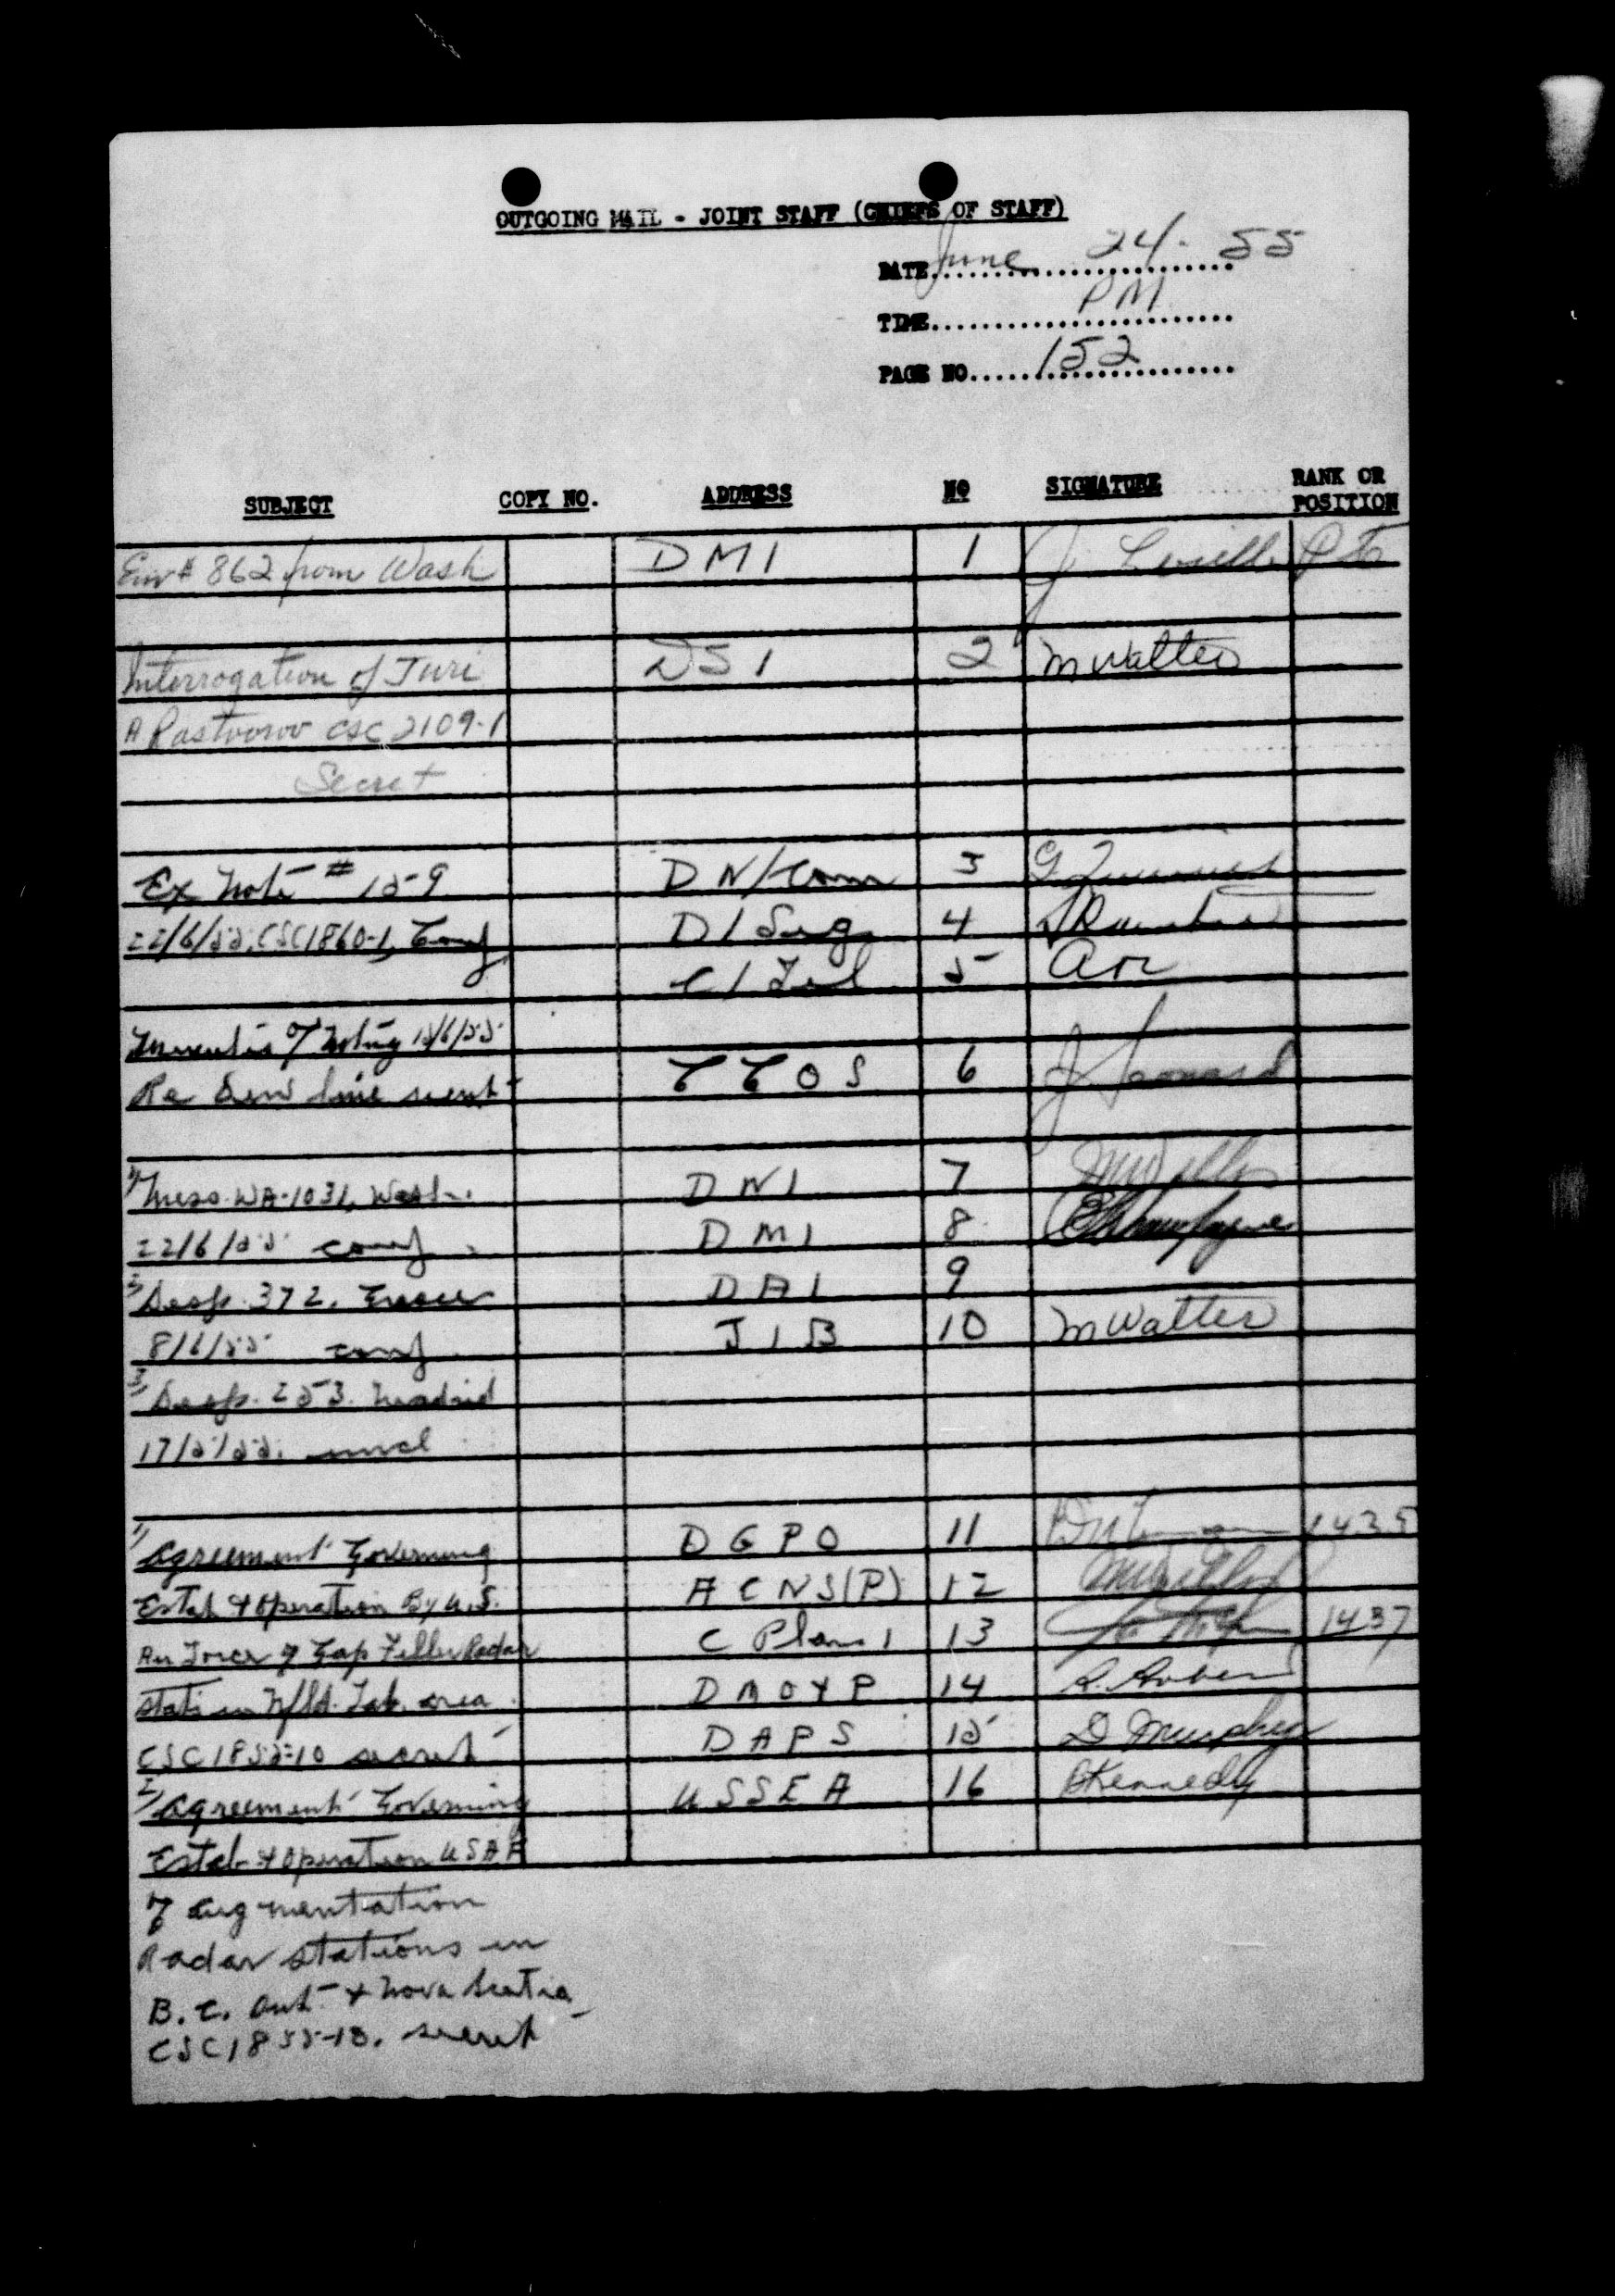 OUTGOING MAIL - JOINT STAFF (CHIEFS OF STAFF)
DATE June 24. 55
TIME PM
PAGE NO. 152
SUBJECT COPY NO. ADDRESS NO SIGNATURE RANK OR POSITION
Env # 862 from Wash DMI 1 J.
Interrogation of Juri DSI 2 M Walter
A. Rastvorov CSC 2109-1
Secret
Ex Note # 159 DN/Com 3 G
22/6/55, CSC1860-1, Conf D/Sig 4
C/Tel 5
Minutes of Meeting 15/6/55
Re Dew line secret CCOS 6 J Leonard
1) Mess. WA-1031, Wash. DNI 7
22/6/55 conf. DMI 8 Champagne
2) Desp. 372. DAI 9
8/6/55 conf. JIB 10 M Walter
3) Desp. 253. Madrid
17/5/55. uncl
1) Agreement Governing DGPO 11 1435
Estab & Operation By U.S. ACNS(P) 12
Air Force of Gap Filler Radar C Plans 1 13 1437
Stats in Nfld. Lab. area. DMO&P 14
CSC1855-10 secret DAPS 15 D Murphy
2) Agreement Governing USSEA 16 Kennedy
Estab & Operation USAF
of Augmentation
Radar Stations in
B.C. Ont. & Nova Scotia
CSC1855-13. secret